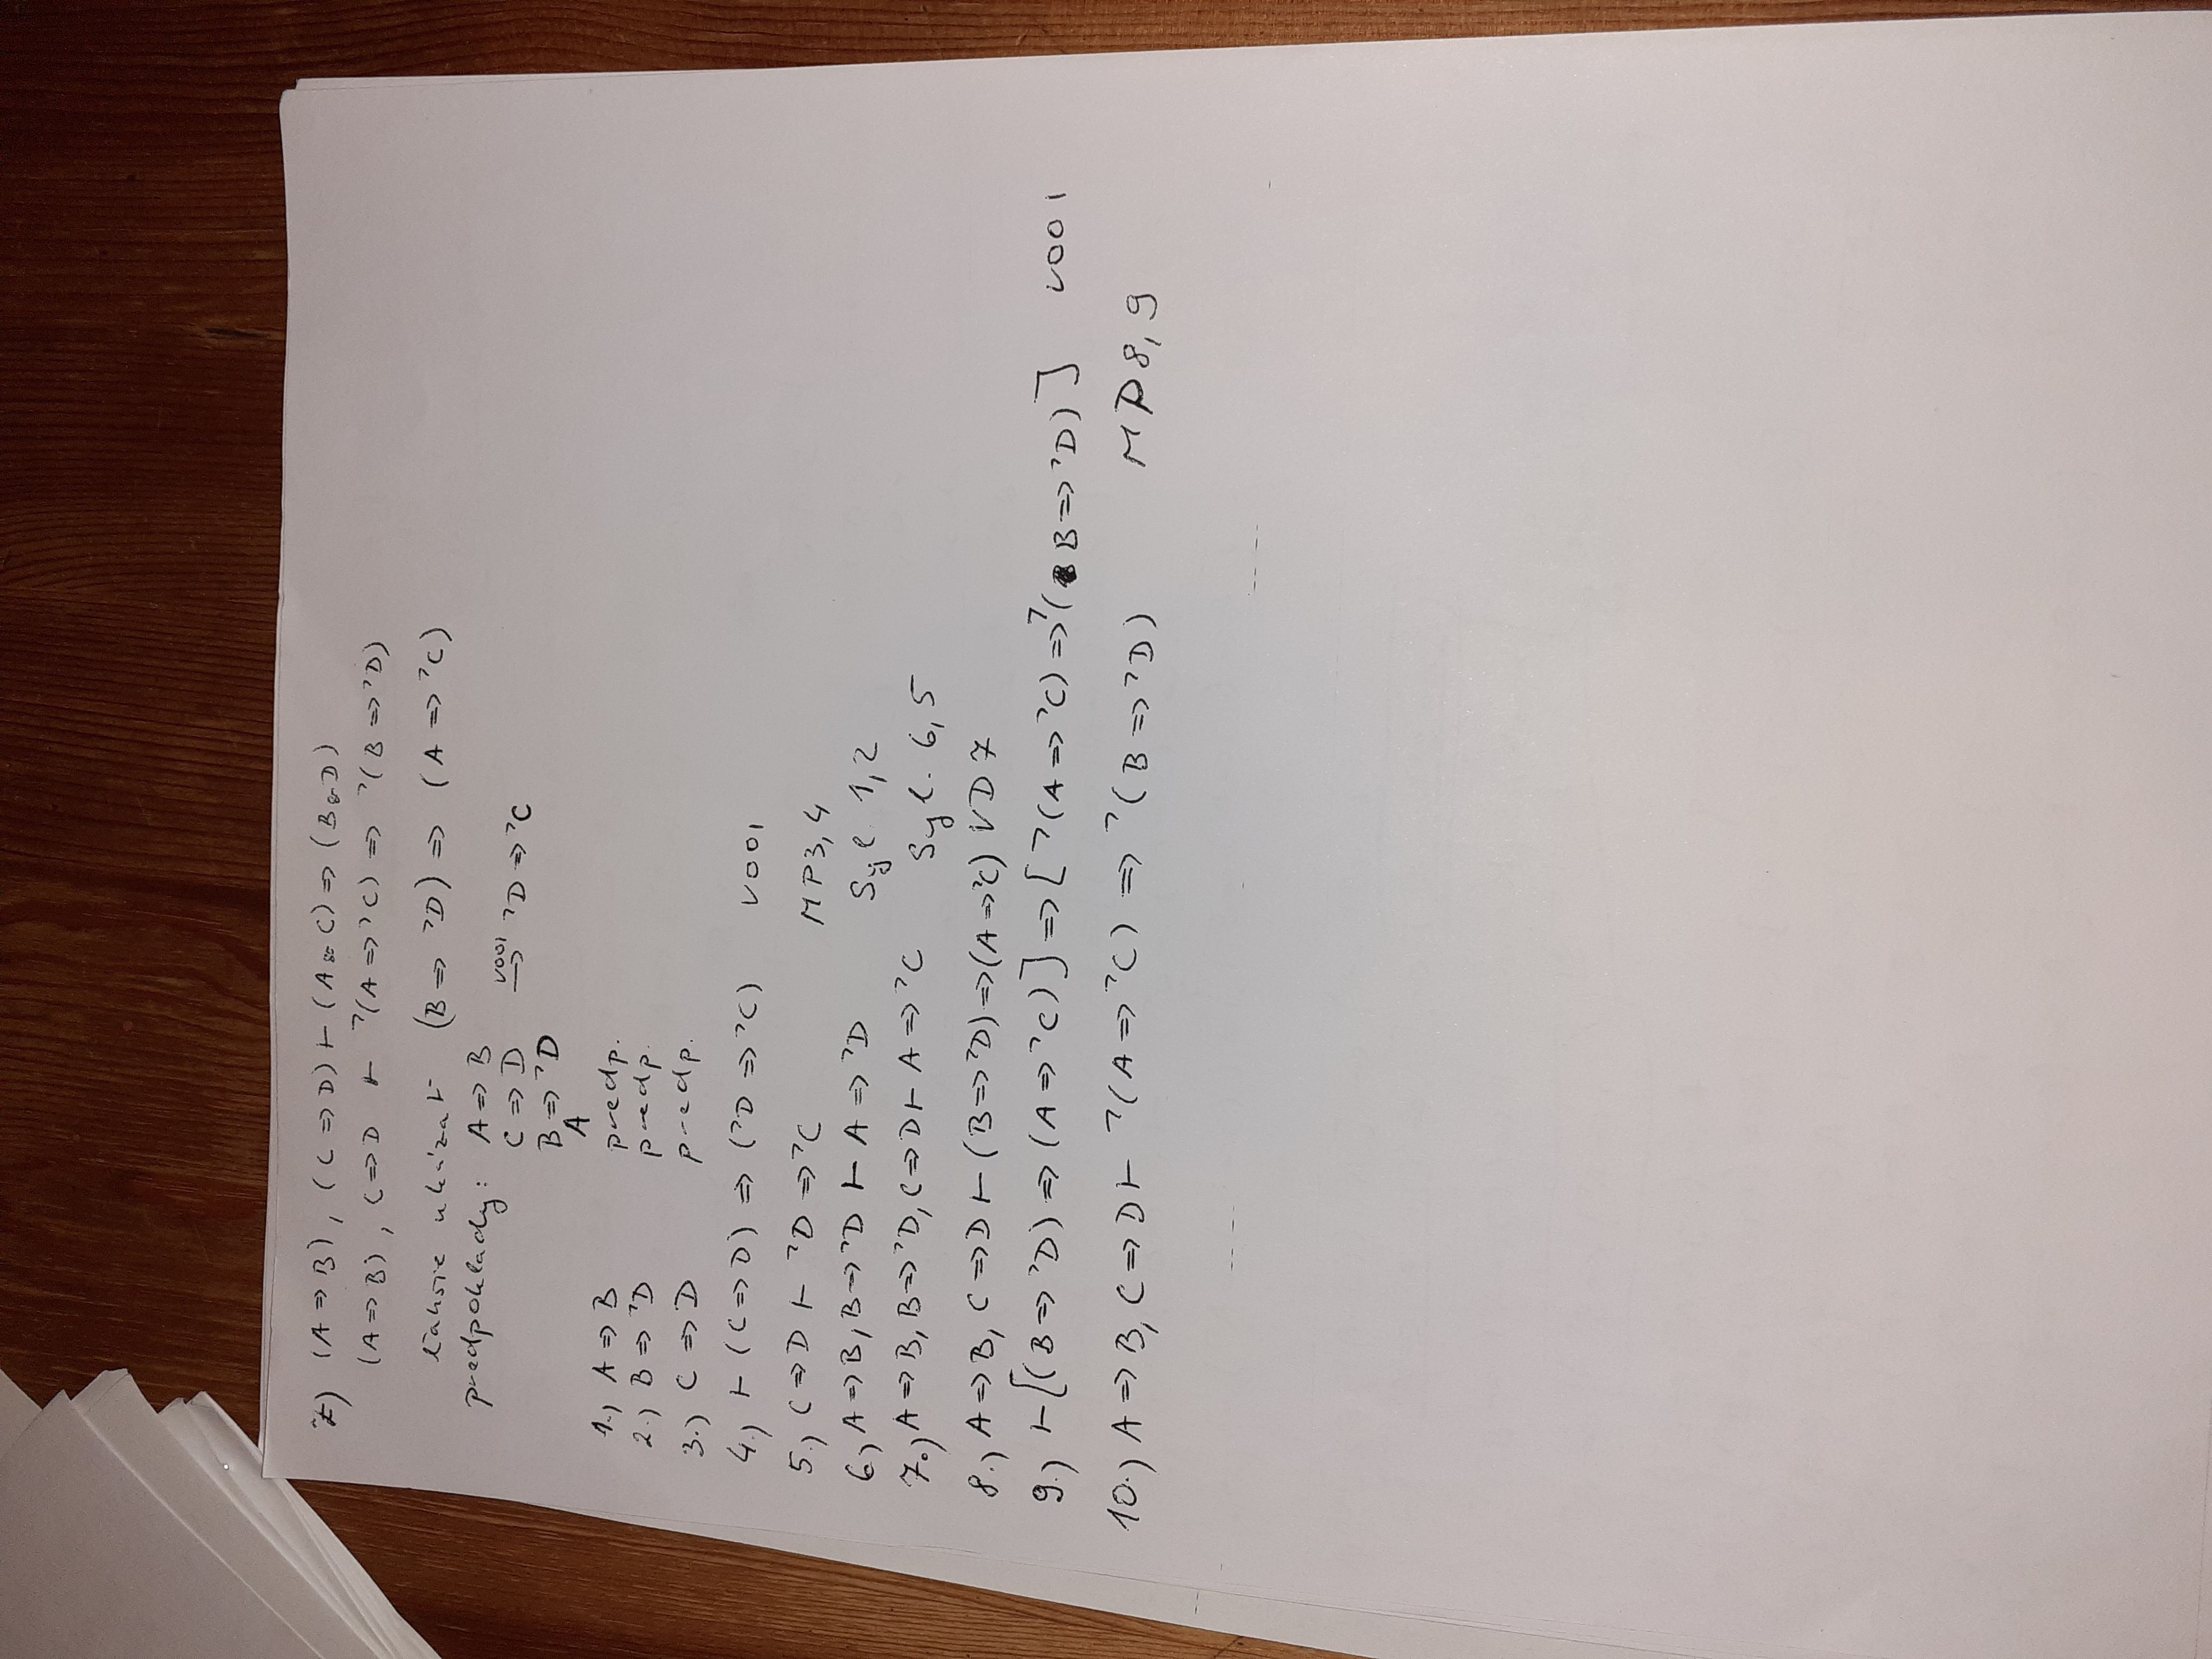 7) (A => B), (C => D) ⊢ (A & C) => (B & D)
(A => B), C => D ⊢ ⌝(A => ⌝C) => ⌝(B => ⌝D)
ľahšie ukázať (B => ⌝D) => (A => ⌝C)
predpoklady: A => B
C => D VOO1 => ⌝D => ⌝C
B => ⌝D
A
1.) A => B predp.
2.) B => ⌝D predp.
3.) C => D predp.
4.) ⊢ (C => D) => (⌝D => ⌝C) VOO1
5.) C => D ⊢ ⌝D => ⌝C MP3,4
6.) A => B, B => ⌝D ⊢ A => ⌝D Syl. 1,2
7.) A => B, B => ⌝D, C => D ⊢ A => ⌝C Syl. 6,5
8.) A => B, C => D ⊢ (B => ⌝D) => (A => ⌝C) VD7
9.) ⊢ [(B => ⌝D) => (A => ⌝C)] => [⌝(A => ⌝C) => ⌝(B => ⌝D)] VOO1
10.) A => B, C => D ⊢ ⌝(A => ⌝C) => ⌝(B => ⌝D) MP8,9